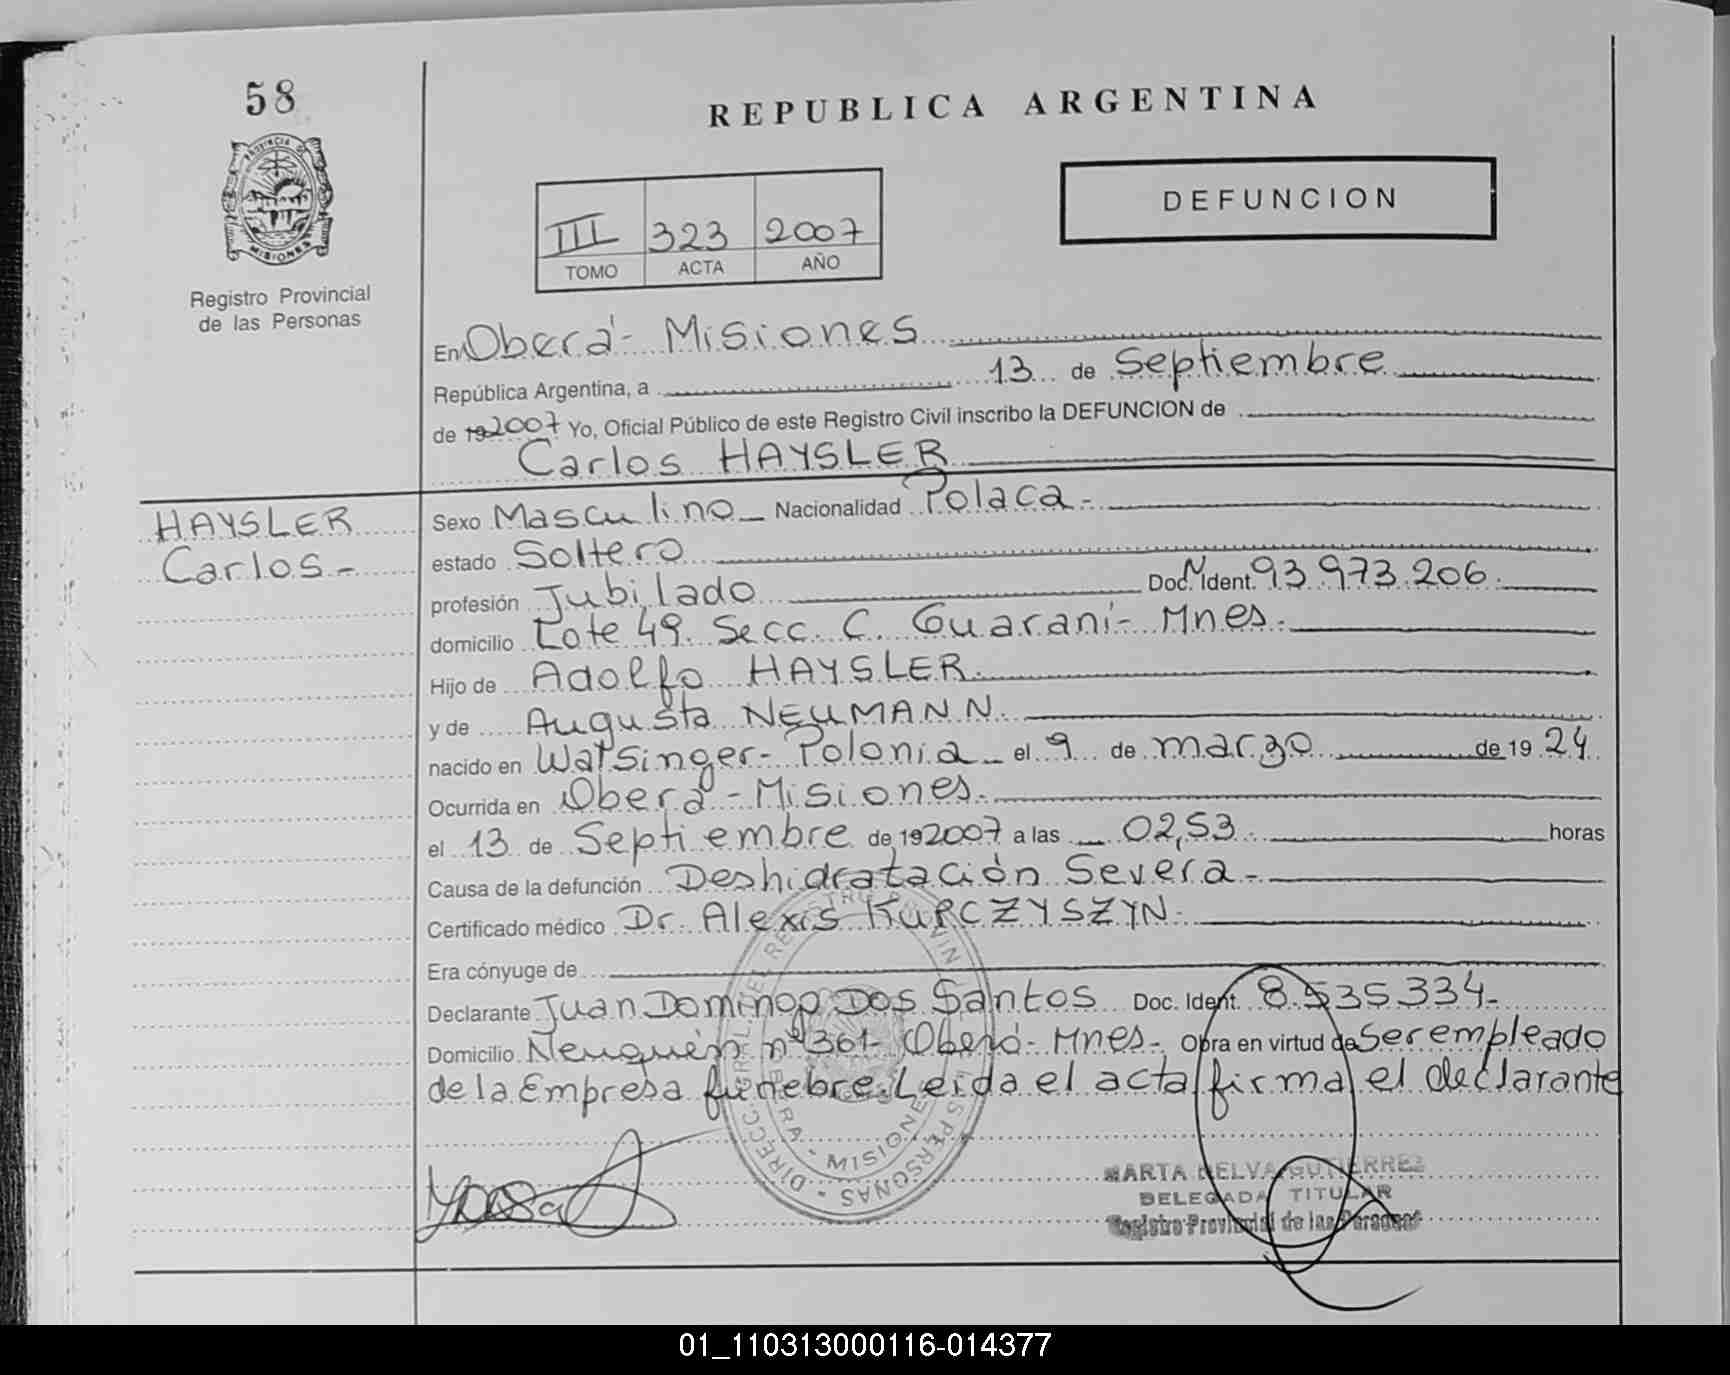 58
REPUBLICA ARGENTINA
PROVINCIA DE
MISIONES
Registro Provincial
de las Personas
III 323 2007
TOMO ACTA AÑO
DEFUNCION
En Oberá - Misiones
República Argentina, a 13 de Septiembre
de 19 2007 Yo, Oficial Público de este Registro Civil inscribo la DEFUNCION de
Carlos HAYSLER
HAYSLER
Carlos -
Sexo Masculino - Nacionalidad Polaca -
estado Soltero
profesión Jubilado Doc. Ident. 93.973.206.
domicilio Lote 49. Secc. C. Guaraní - Mnes.
Hijo de Adolfo HAYSLER.
y de Augusta NEUMANN.
nacido en Watsinger - Polonia - el 9 de marzo de 19 24
Ocurrida en Oberá - Misiones.
el 13 de Septiembre de 19 2007 a las 02,53 - horas
Causa de la defunción Deshidratación Severa -
Certificado médico Dr. Alexis KURCZYSZYN.
Era cónyuge de
Declarante Juan Domingo Dos Santos Doc. Ident. 8.535.334 -
Domicilio Neuquén nº 361 - Oberá - Mnes - Obra en virtud de Ser empleado
de la Empresa fúnebre. Leida el acta firma el declarante
MISIONES
MARTA NELVA GUTIERREZ
DELEGADA TITULAR
Registro Provincial de las Personas
01_110313000116-014377